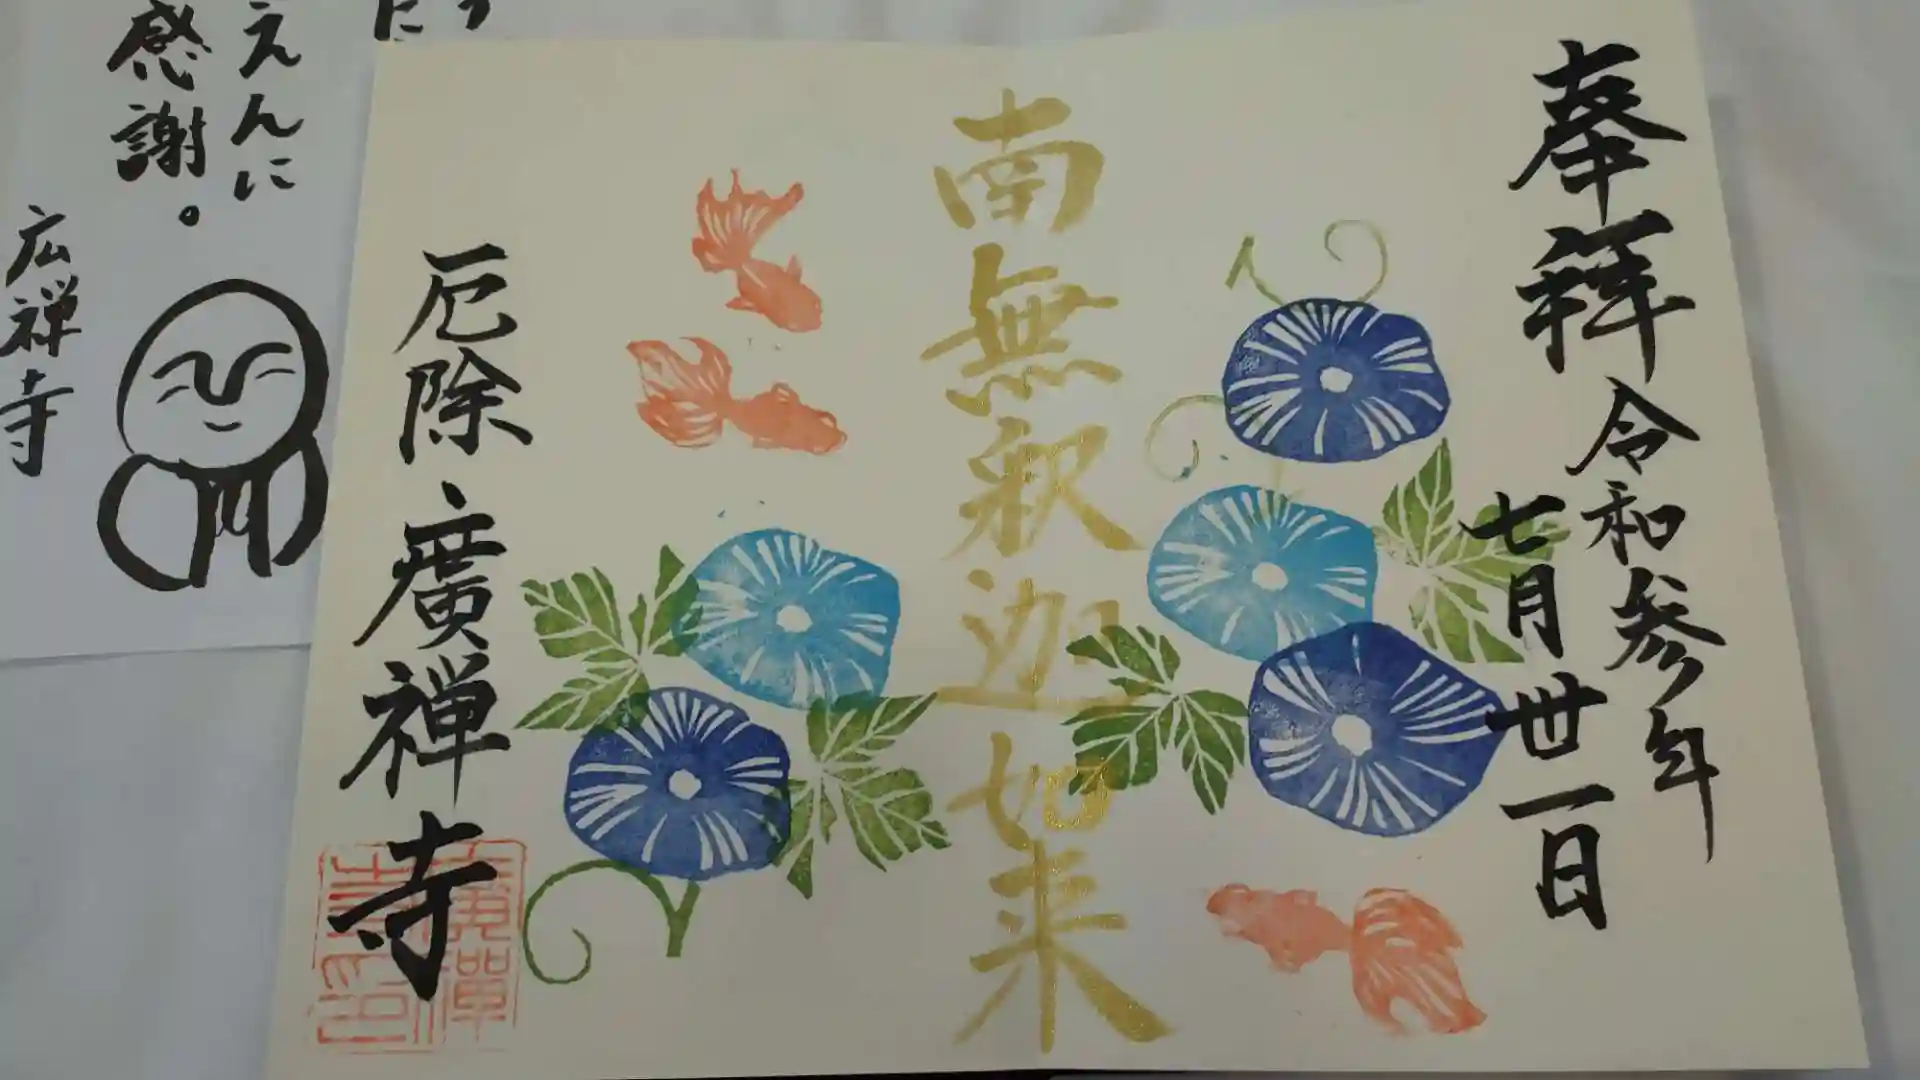 奉拜
令和参年
七月丗一日
南無釈迦如来
厄除 廣禅寺
えんに
感謝。
広禅寺